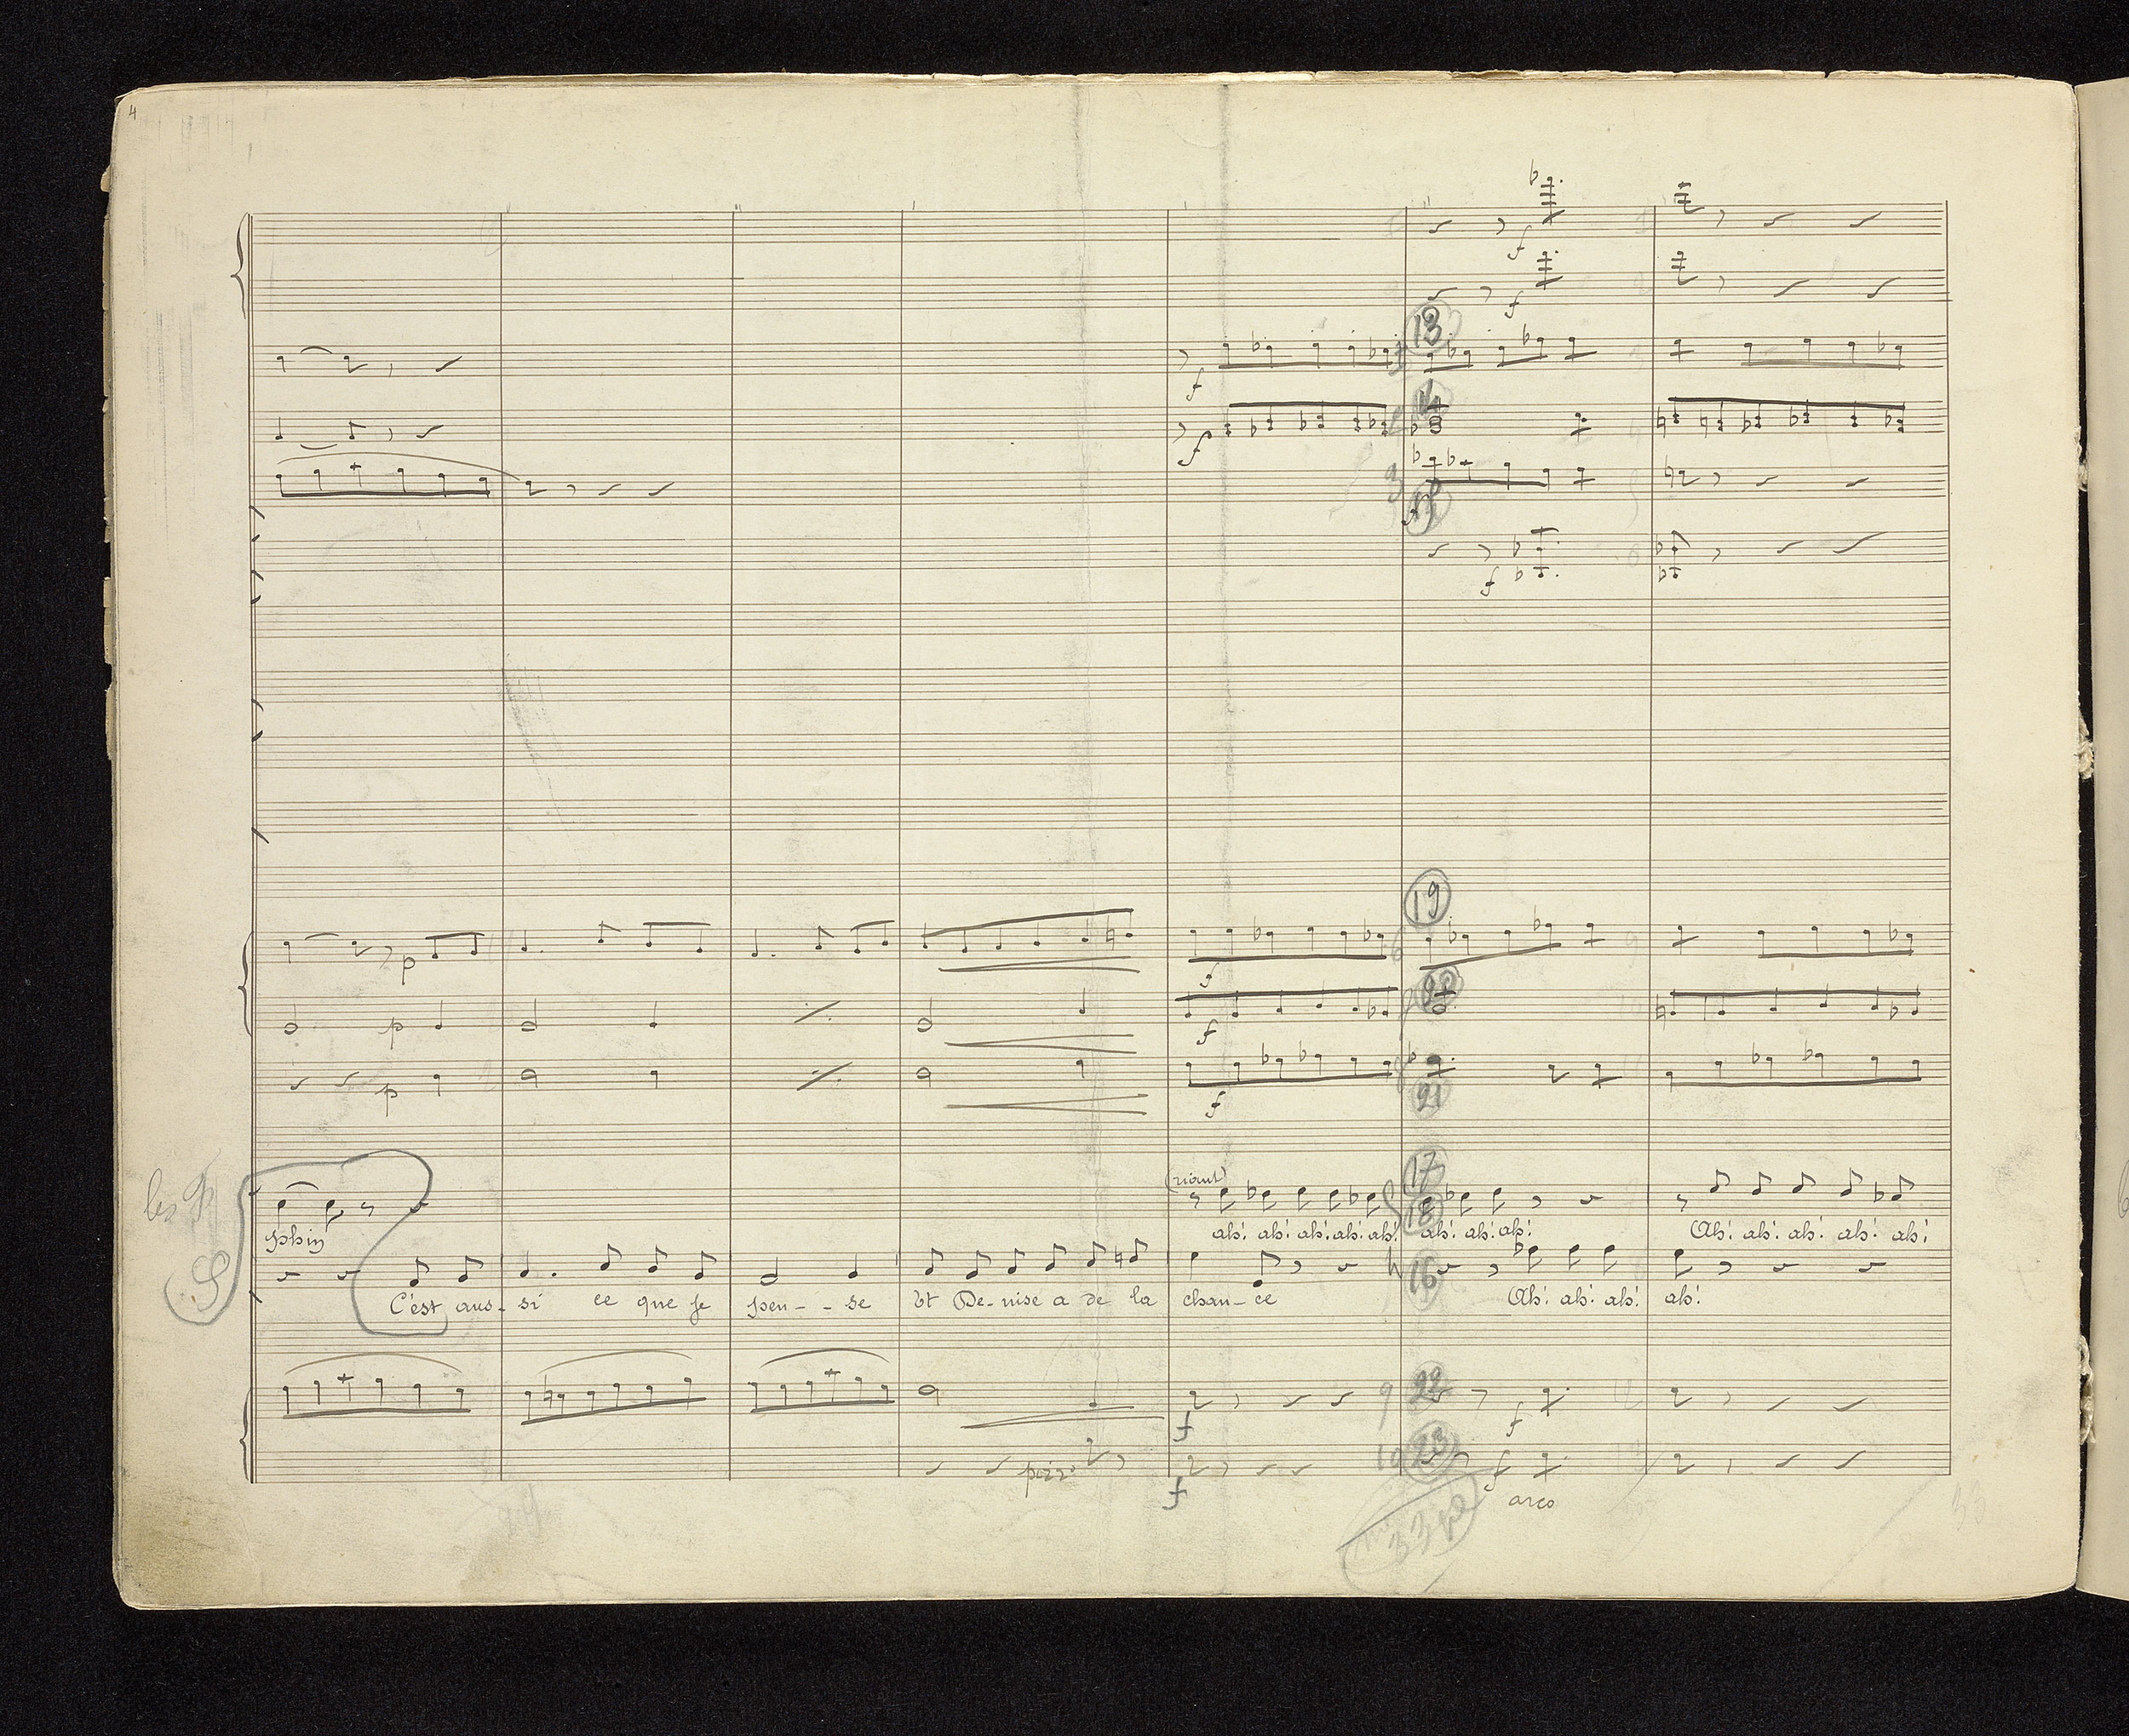 4
f
f
13
f
f
f
f
19
p
f
p
f
p
f
21
17
(riant)
18
phin ah! ah! ah! ah! ah! ah! ah! ah! Ah! ah! ah! ah! ah!
16
C'est aus-si ce que je pen--se Et De-nise a de la chan-ce Ah! ah! ah! ah!
9 22
f f
10 23
pizz f f
arco
33